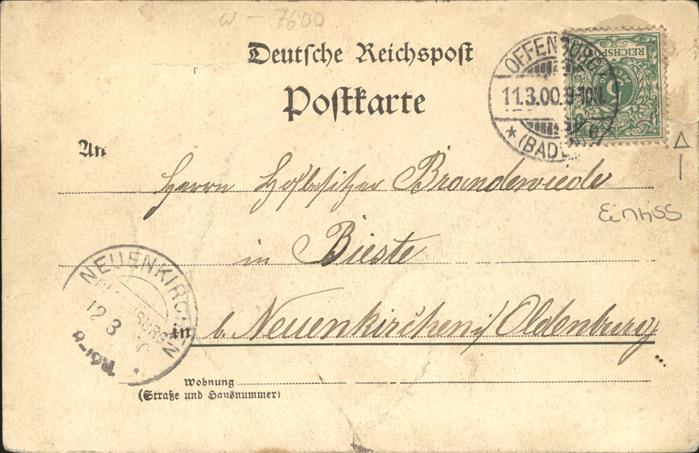 W - 7600
Deutsche Reichspost
Postkarte
REICHSPOST
5
OFFENBURG
11.3.00.9-10N.
* (BADEN)
An
Herrn Hofbesitzer Brandewiede
in Bieste
Einriss
NEUENKIRCHEN
12 3
in b. Neuenkirchen i/ Oldenburg
Wohnung
(Straße und Hausnummer)